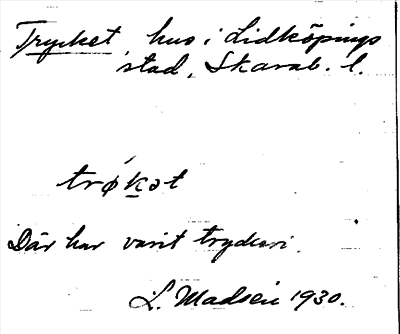 Trycket, hus i Lidköpings
stad, Skarab. l.
trǿkət
Där har varit tryckeri.
L. Madsén 1930.